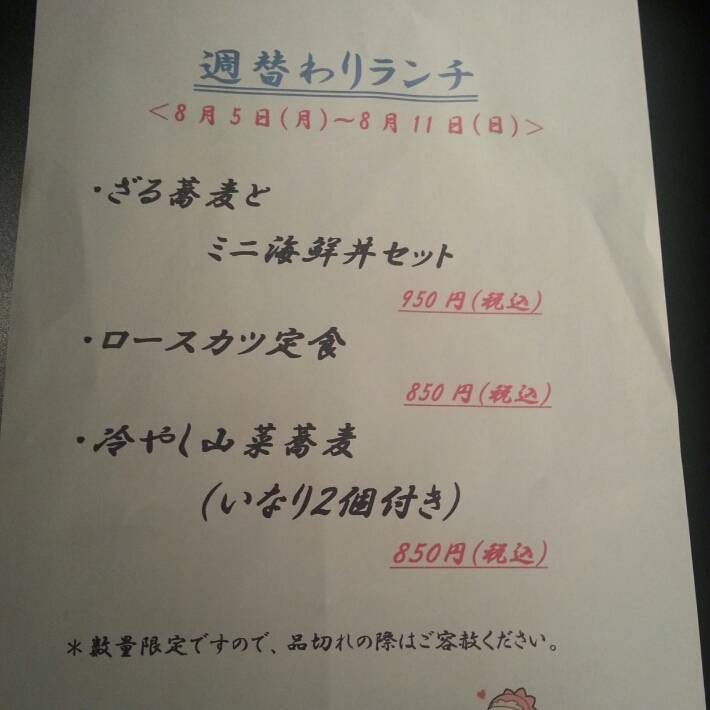 週替わりランチ
<8月5日(月)～8月11日(日)>
・ざる蕎麦と
ミニ海鮮丼セット
950円(税込)
・ロースカツ定食
850円(税込)
・冷やし山菜蕎麦
(いなり2個付き)
850円(税込)
＊数量限定ですので、品切れの際はご容赦ください。